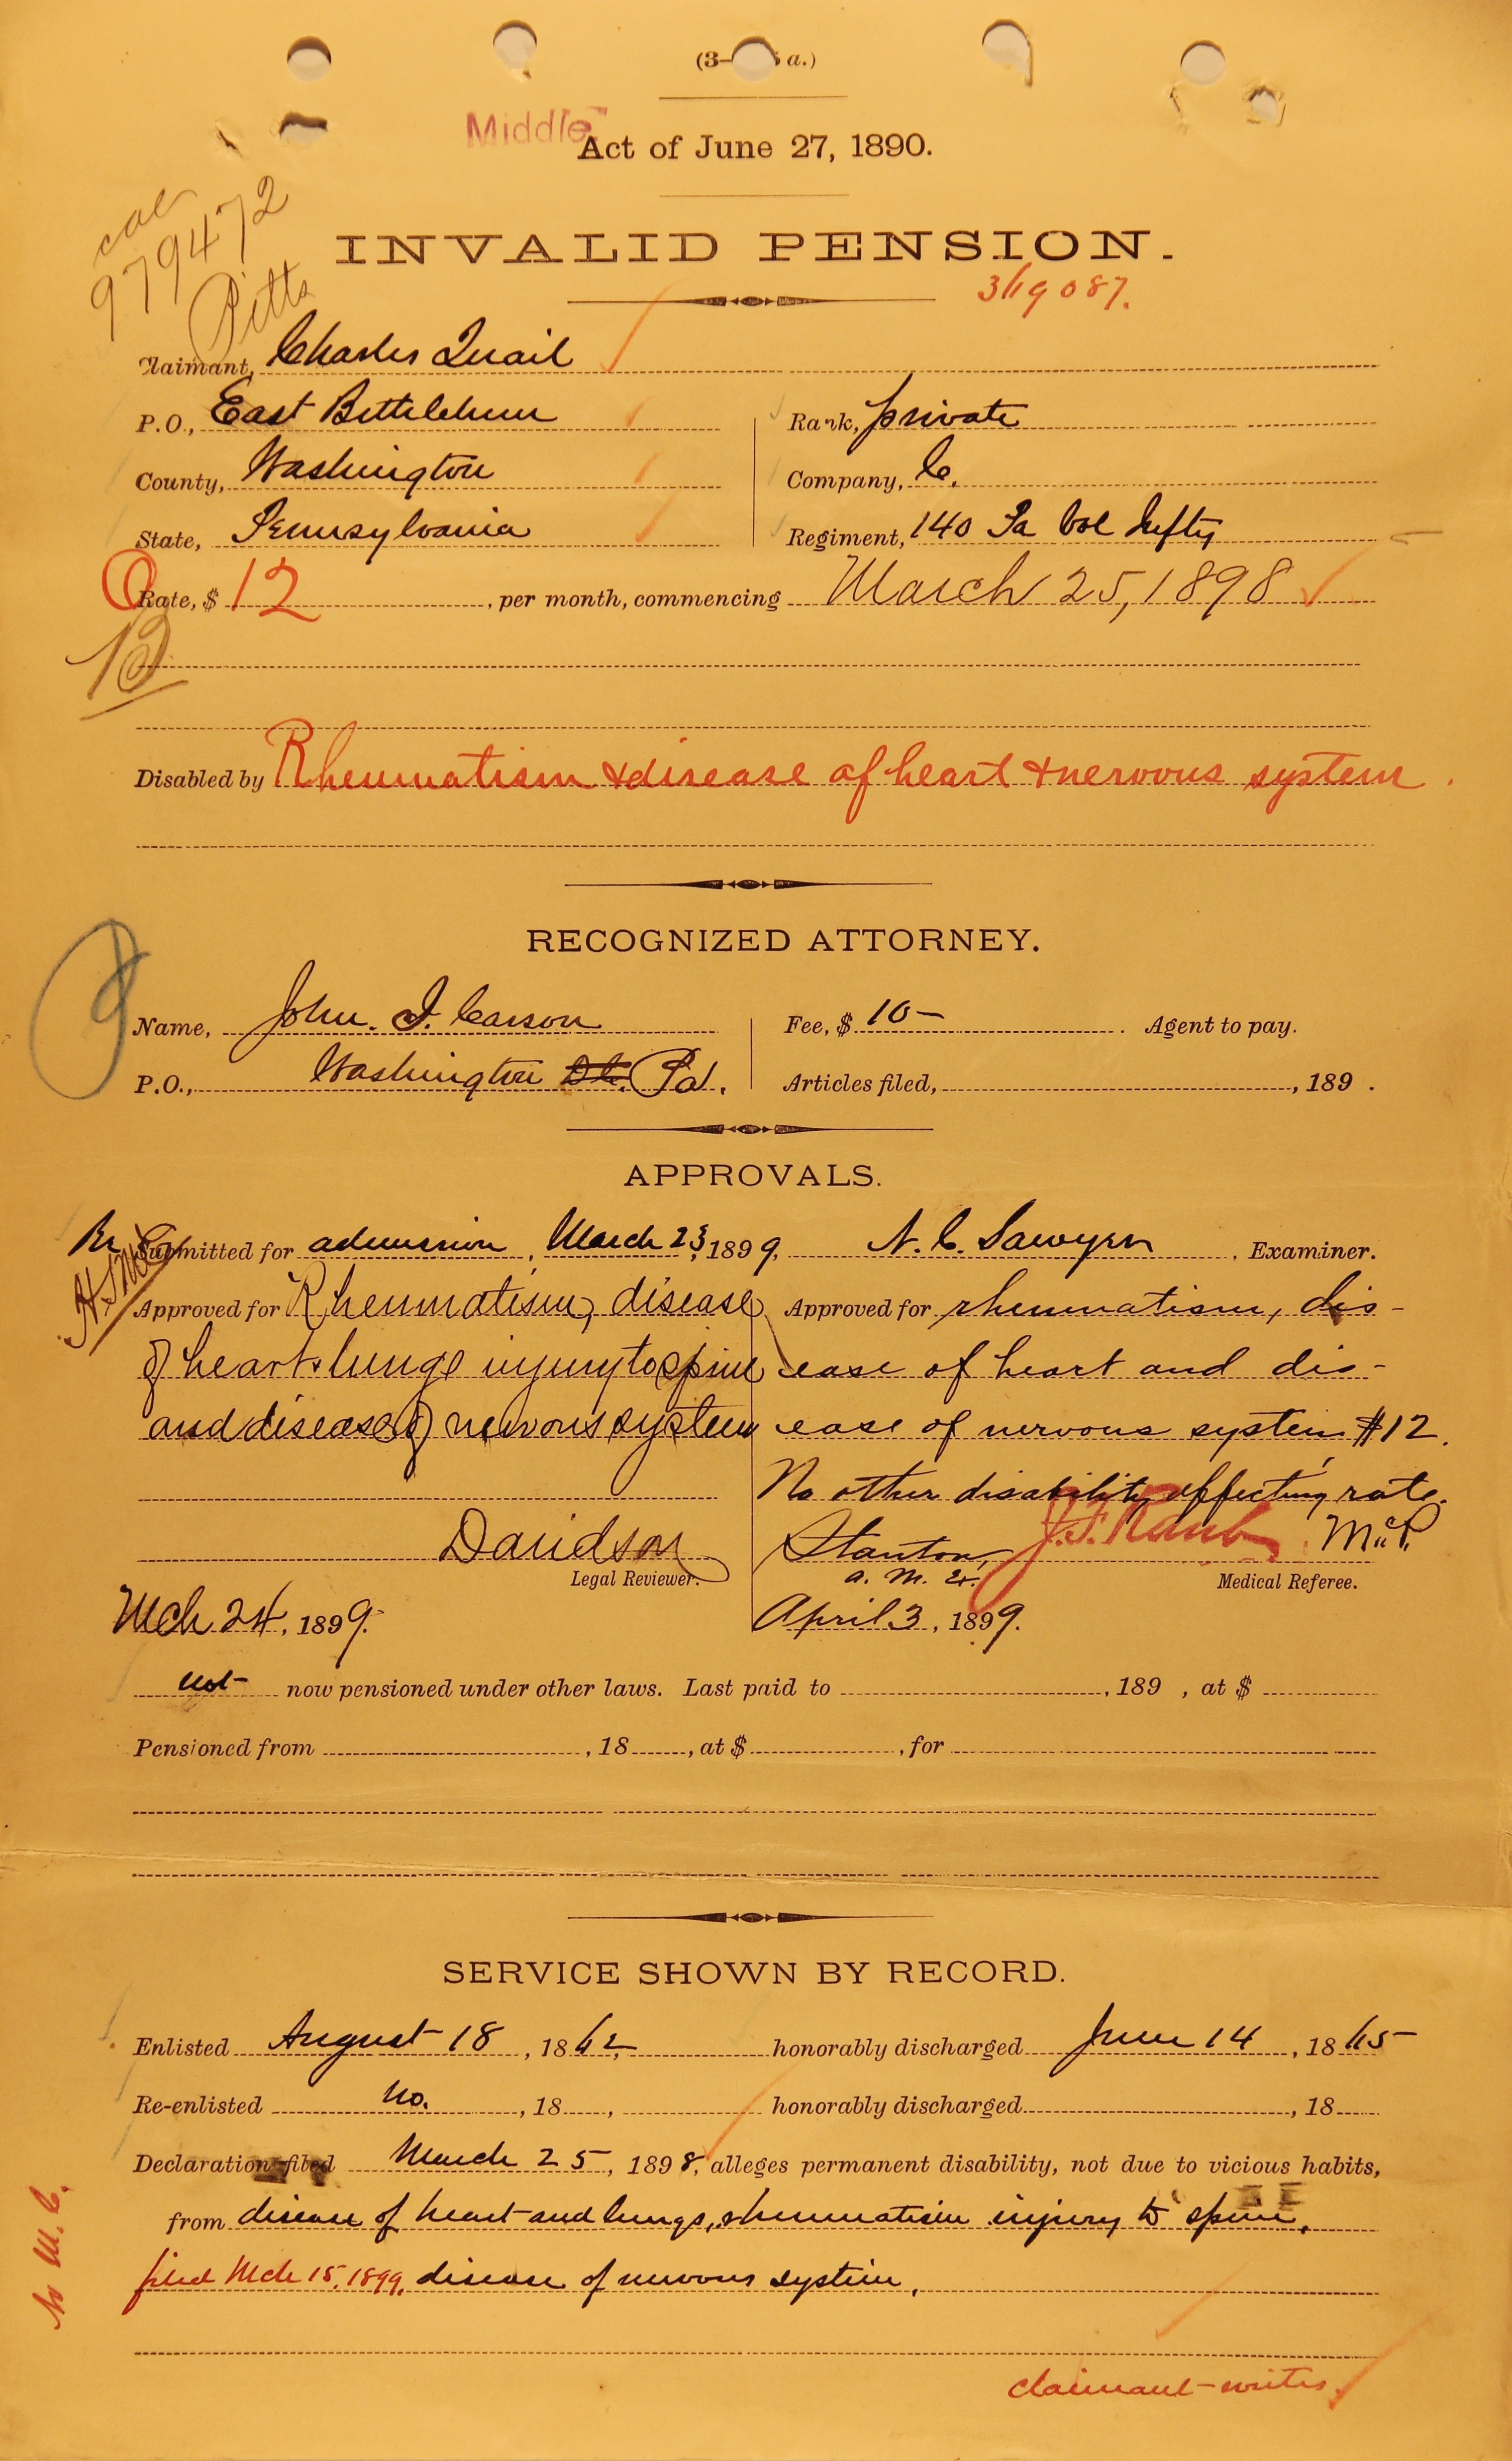 (3- a.)
Middle
Act of June 27, 1890.
979472
Pitts
INVALID PENSION.
Claimant, Charles Quail
P.O., East Bethlehem
Rank, private
County, Washington
Company, C.
State, Pennsylvania
Regiment, 140 Pa Vol Infty
Rate, $ 12 per month, commencing March 25, 1898
Disabled by Rheumatism & disease of heart & nervous system.
RECOGNIZED ATTORNEY.
Name, John. I. Carson
Fee, $ 10- Agent to pay.
P.O., Washington D.C. Pa.
Articles filed, , 189 .
APPROVALS.
Re Submitted for admission, March 23, 1899, N. C. Sawyer, Examiner.
Approved for Rheumatism, disease
of heart & lungs injury to spine
and disease of nervous system
Approved for rheumatism, dis-
ease of heart and dis-
ease of nervous system $12.
No other disability affecting rate.
Davidson
Legal Reviewer.
Stanton, J.F. Raub
a. m. Ex.
Medical Referee.
Mch 24, 1899.
April 3, 1899.
not now pensioned under other laws. Last paid to , 189 , at $
Pensioned from , 18 , at $ , for
SERVICE SHOWN BY RECORD.
Enlisted August 18, 1862, honorably discharged June 14, 1865
Re-enlisted no. , 18 , honorably discharged , 18
Declaration filed March 25, 1898, alleges permanent disability, not due to vicious habits,
from disease of heart and lungs, rheumatism injury to spine,
filed Mch 15, 1899, disease of nervous system.
claimant-writes.